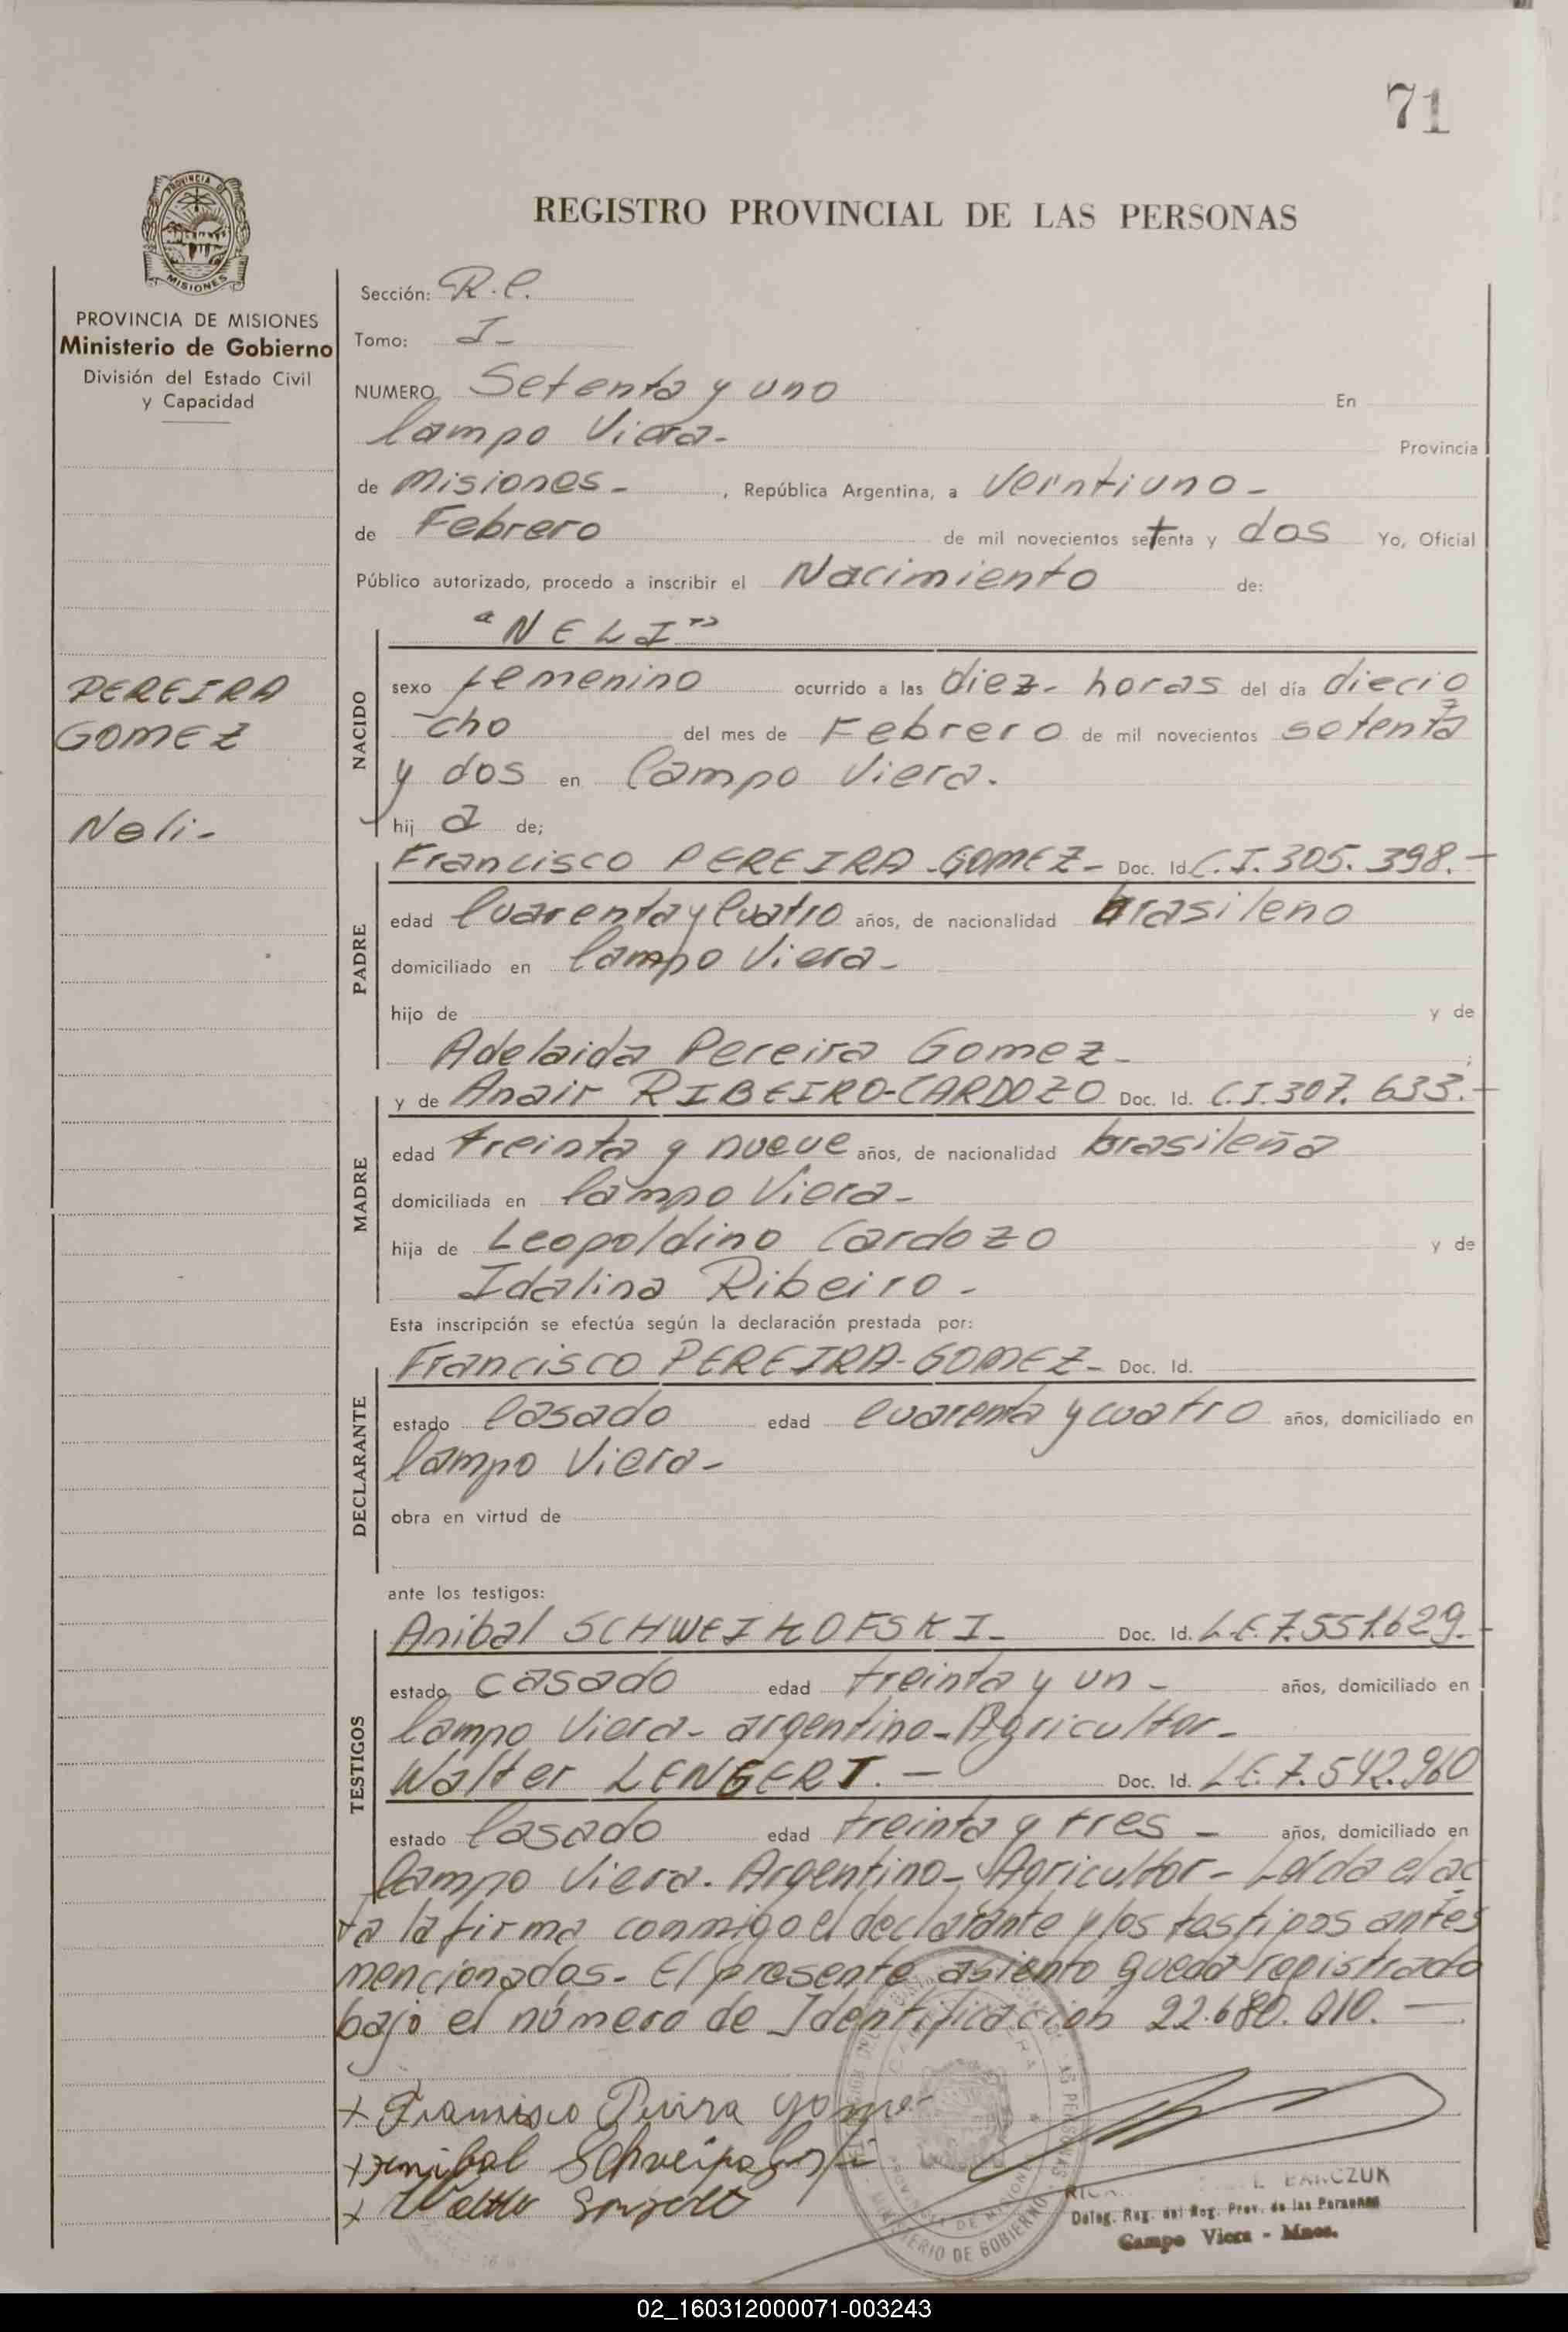 71
PROVINCIA DE
MISIONES
REGISTRO PROVINCIAL DE LAS PERSONAS
PROVINCIA DE MISIONES
Ministerio de Gobierno
División del Estado Civil
y Capacidad
PEREIRA
GOMEZ
Neli-
Sección: R.C.
Tomo: I-
NUMERO Setenta y uno En
Campo Viera- Provincia
de Misiones- , República Argentina, a Veintiuno-
de Febrero de mil novecientos setenta y dos Yo, Oficial
Público autorizado, procedo a inscribir el Nacimiento de:
NACIDO
"NELI"
sexo femenino ocurrido a las diez- horas del día diecio
cho del mes de Febrero de mil novecientos setenta
y dos en Campo Viera.
hij a de;
PADRE
Francisco PEREIRA-GOMEZ- Doc. Id. C.I.305.398.-
edad Cuarenta y Cuatro años, de nacionalidad brasileño
domiciliado en Campo Viera-
hijo de y de
Adelaida Pereira Gomez- ;
MADRE
y de Anair RIBEIRO-CARDOZO Doc. Id. C.I.307.633.-
edad treinta y nueve años, de nacionalidad brasileña
domiciliada en Campo Viera-
hija de Leopoldino Cardozo y de
Idalina Ribeiro-
Esta inscripción se efectúa según la declaración prestada por:
DECLARANTE
Francisco PEREIRA-GOMEZ- Doc. Id.
estado Casado edad cuarenta y cuatro años, domiciliado en
Campo Viera-
obra en virtud de
ante los testigos:
TESTIGOS
Anibal SCHWEIKOFSKI- Doc. Id. L.E.7.551.629.-
estado casado edad treinta y un- años, domiciliado en
Campo Viera- argentino-Agricultor-
Walter LENGERT.- Doc. Id. L.E.7.542.960
estado Casado edad treinta y tres- años, domiciliado en
Campo Viera. Argentino-Agricultor- Leída el ac
ta la firma conmigo el declarante y los testigos antes
mencionados. El presente asiento queda registrado
bajo el número de Identificación 22.680.010.-
x Francisco
x Anibal
x
MINISTERIO DE GOBIERNO
PROVINCIA DE MISIONES
Deleg. Reg. del Reg. Prov. de las Personas
Campo Viera - Mnes.
02_160312000071-003243